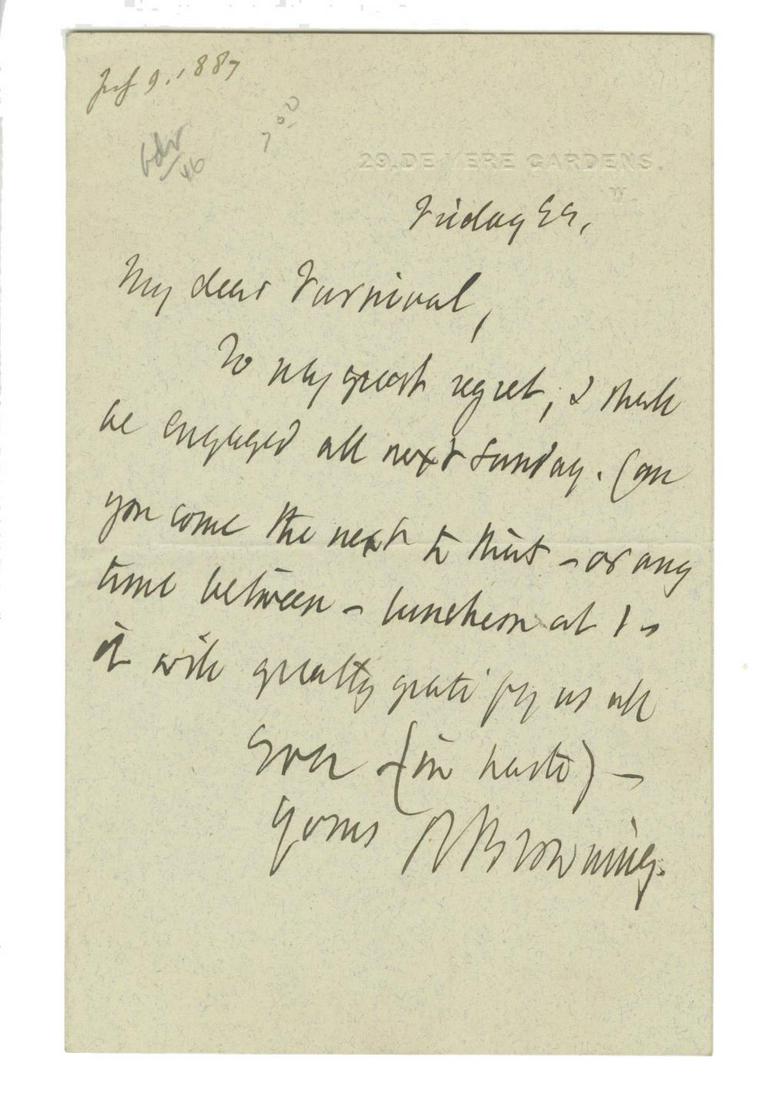 9. 1887
7 00
29, DE VERE GARDENS.
W.
Friday
My dear Furnivall,
To my great regret, I shall
be engaged all next Sunday. Can
you come the next to that – or any
time between – luncheon at 1 –
it will greatly gratify us all
Ever – (in haste) –
yours RBrowning.